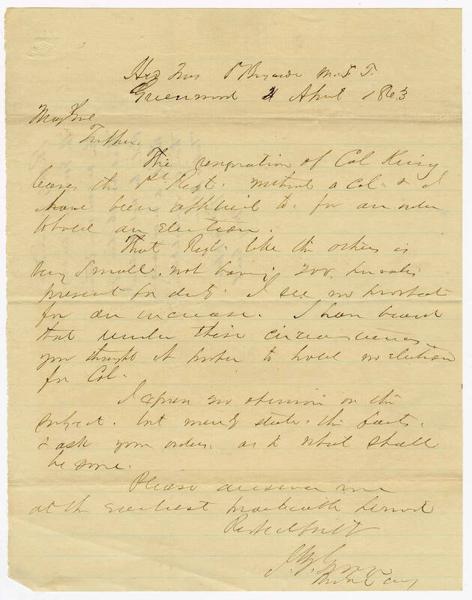 Hd Qrs 1st Brigade M.S.T.
Greenwood 4 April 1863
The resignation of Col King
leaves the 1st Regt. without a Col. & I
have been applied to for an order
to hold an election.
That Regt. like the others is
very small, not having 200 privates
present for duty. I see no prospect
for an increase. I have heard
that under these circumstances
you thought it proper to hold no election
for Col.
I express no opinion on the
subject. but merely state the facts.
& ask your orders as to what shall
be done.
Please answer me
at the earliest practicable period
Respectfully